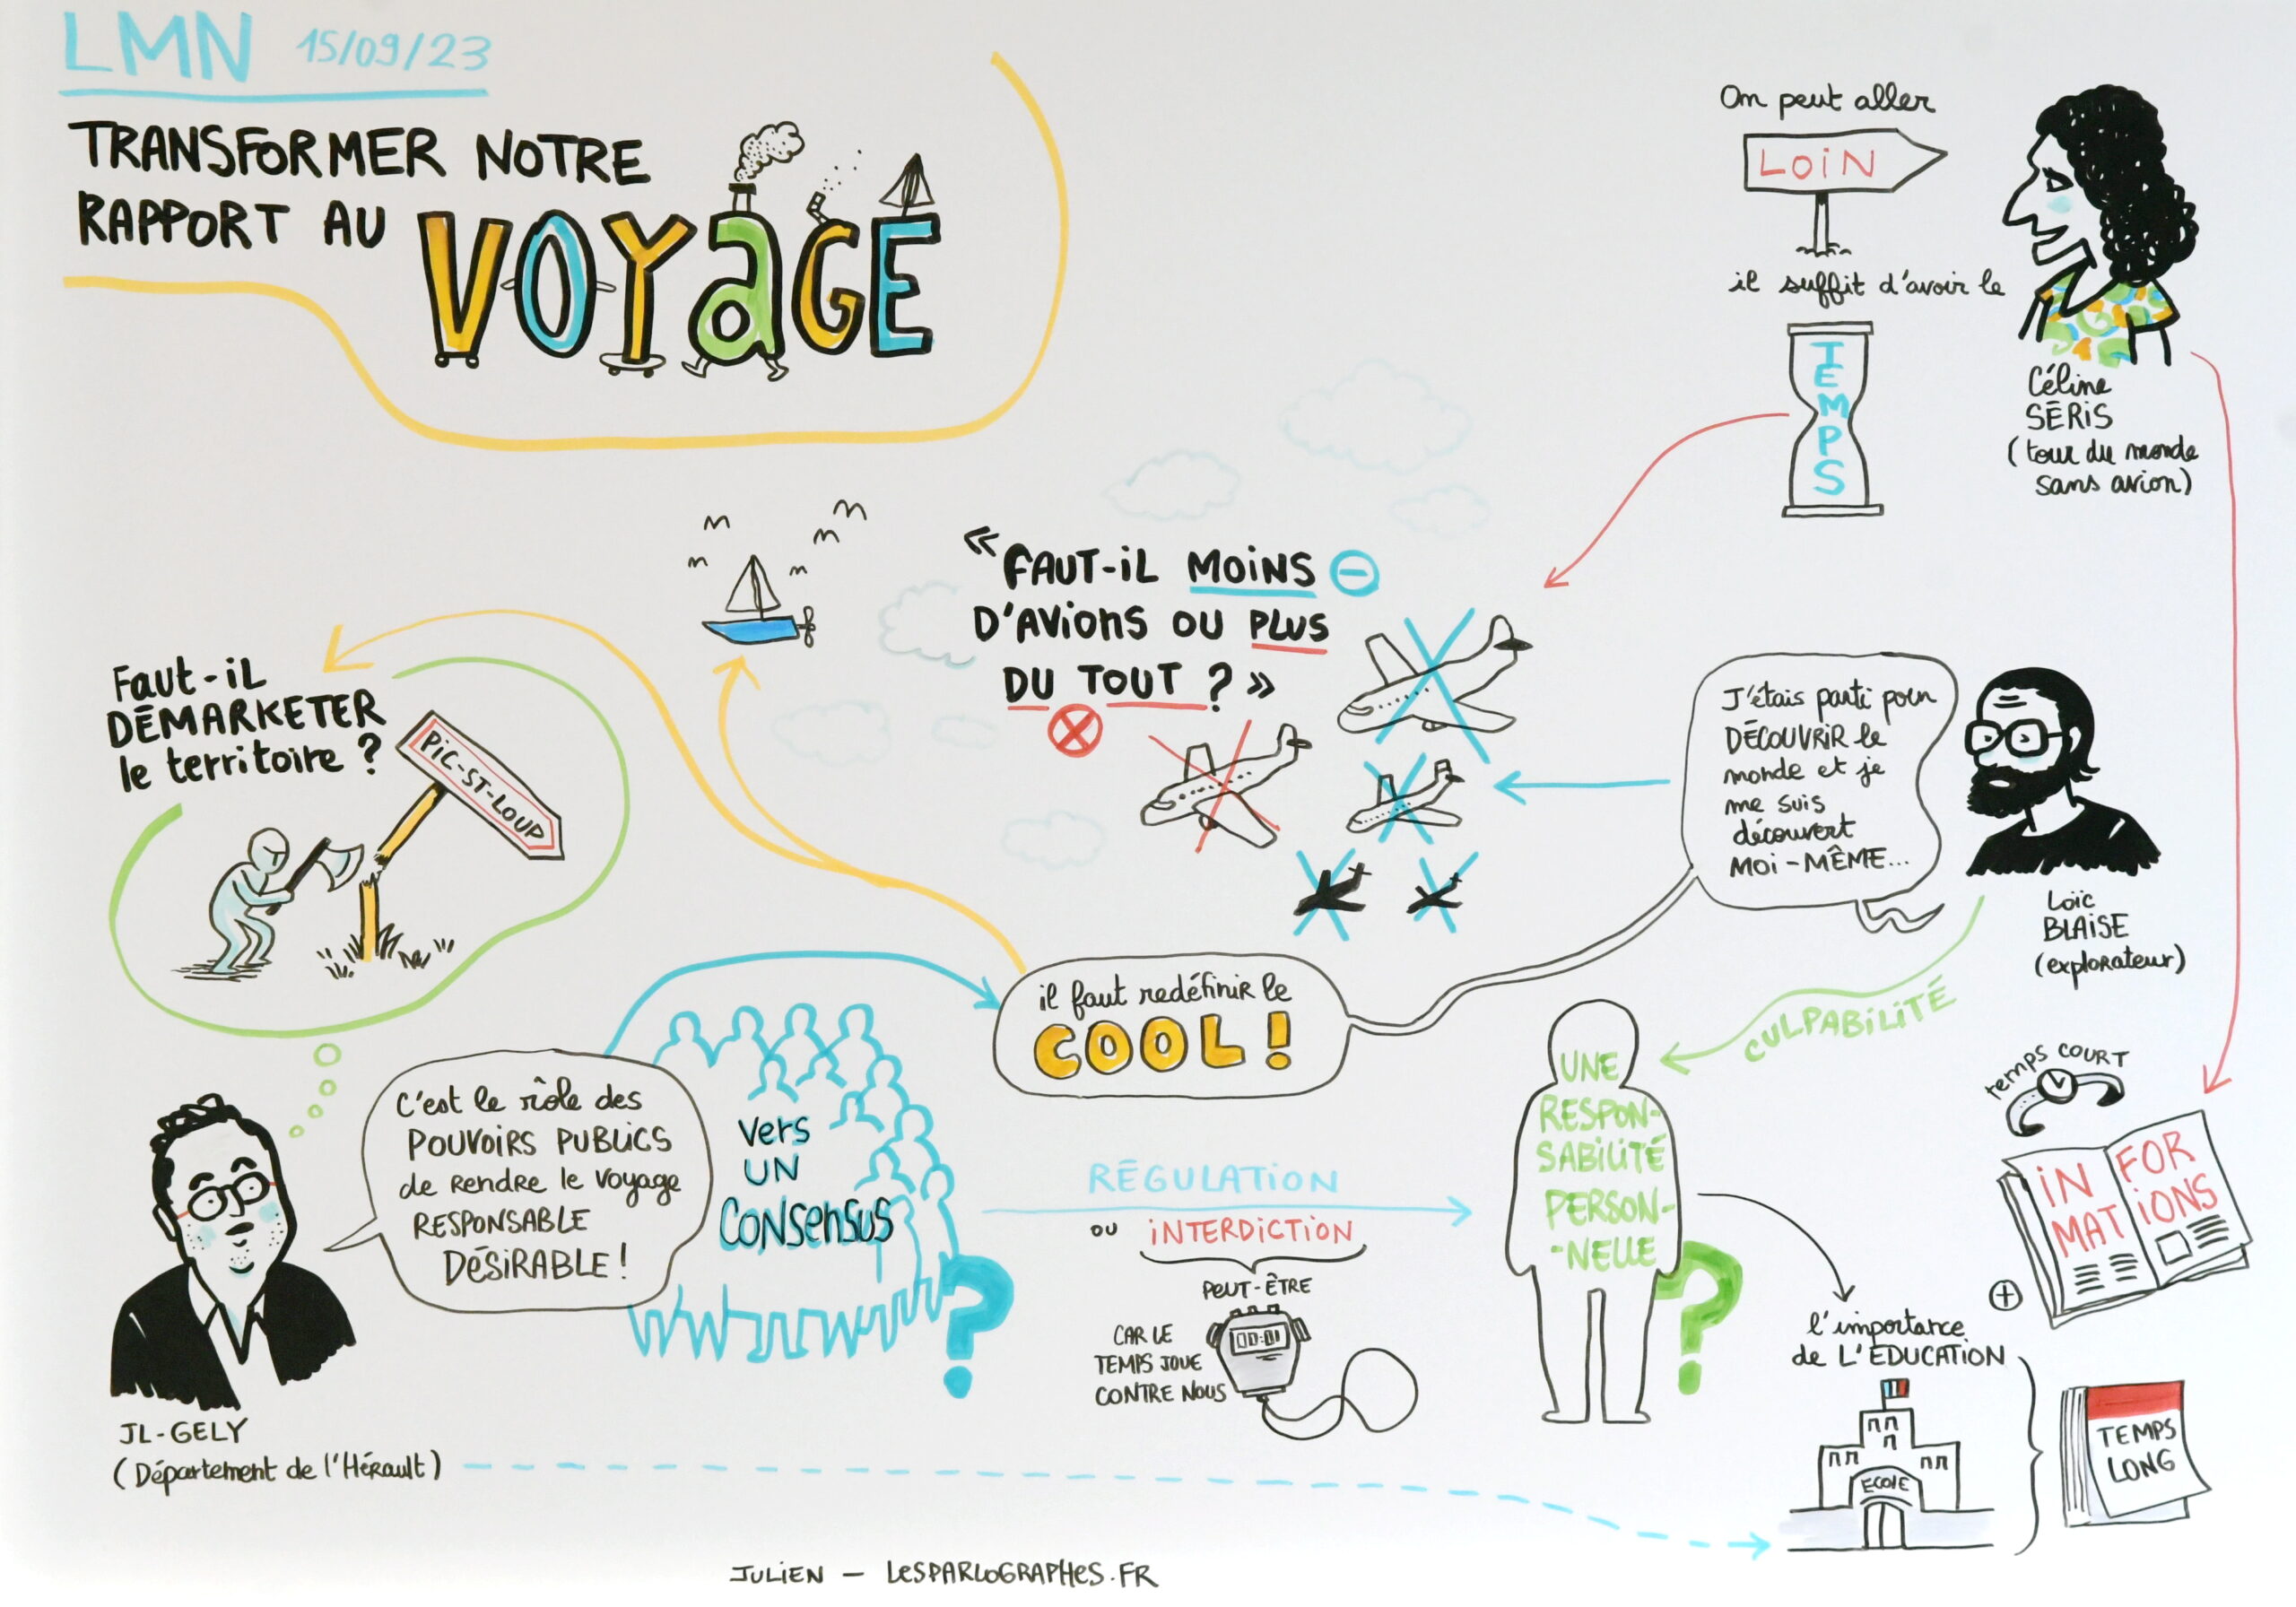 LMN 15/09/23
TRANSFORMER NOTRE
RAPPORT AU VOYAGE
On peut aller
LOiN
il suffit d'avoir le
TEMPS
Céline
SÉRiS
(tour du monde
sans avion)
« FAUT-iL MOiNS
D'AViONS OU PLUS
DU TOUT ? »
Faut-iL
DÉMARKETER
le territoire ?
PiC-ST-LOUP
J'étais parti pour
DÉCOUVRiR le
monde et je
me suis
découvert
MOi-MÊME...
Loïc
BLAiSE
(explorateur)
il faut redéfinir le
COOL !
C'est le rôle des
POUVOiRS PUBLiCS
de rendre le voyage
RESPONSABLE
DÉSiRABLE !
JL-GELY
(Département de l'Hérault)
Vers
UN
CONSENSUS
?
RÉGULATiON
OU iNTERDiCTiON
PEUT-ÊTRE
CAR LE
TEMPS JOUE
CONTRE NOUS
00:01
CULPABiLiTÉ
UNE
RESPON-
SABiLiTÉ
PERSON-
-NELLE
?
temps COURT
iNFOR
MATiONS
+
l'importance
de L'ÉDUCATiON
ECOLE
TEMPS
LONG
JULiEN — LESPARLOGRAPHES.FR